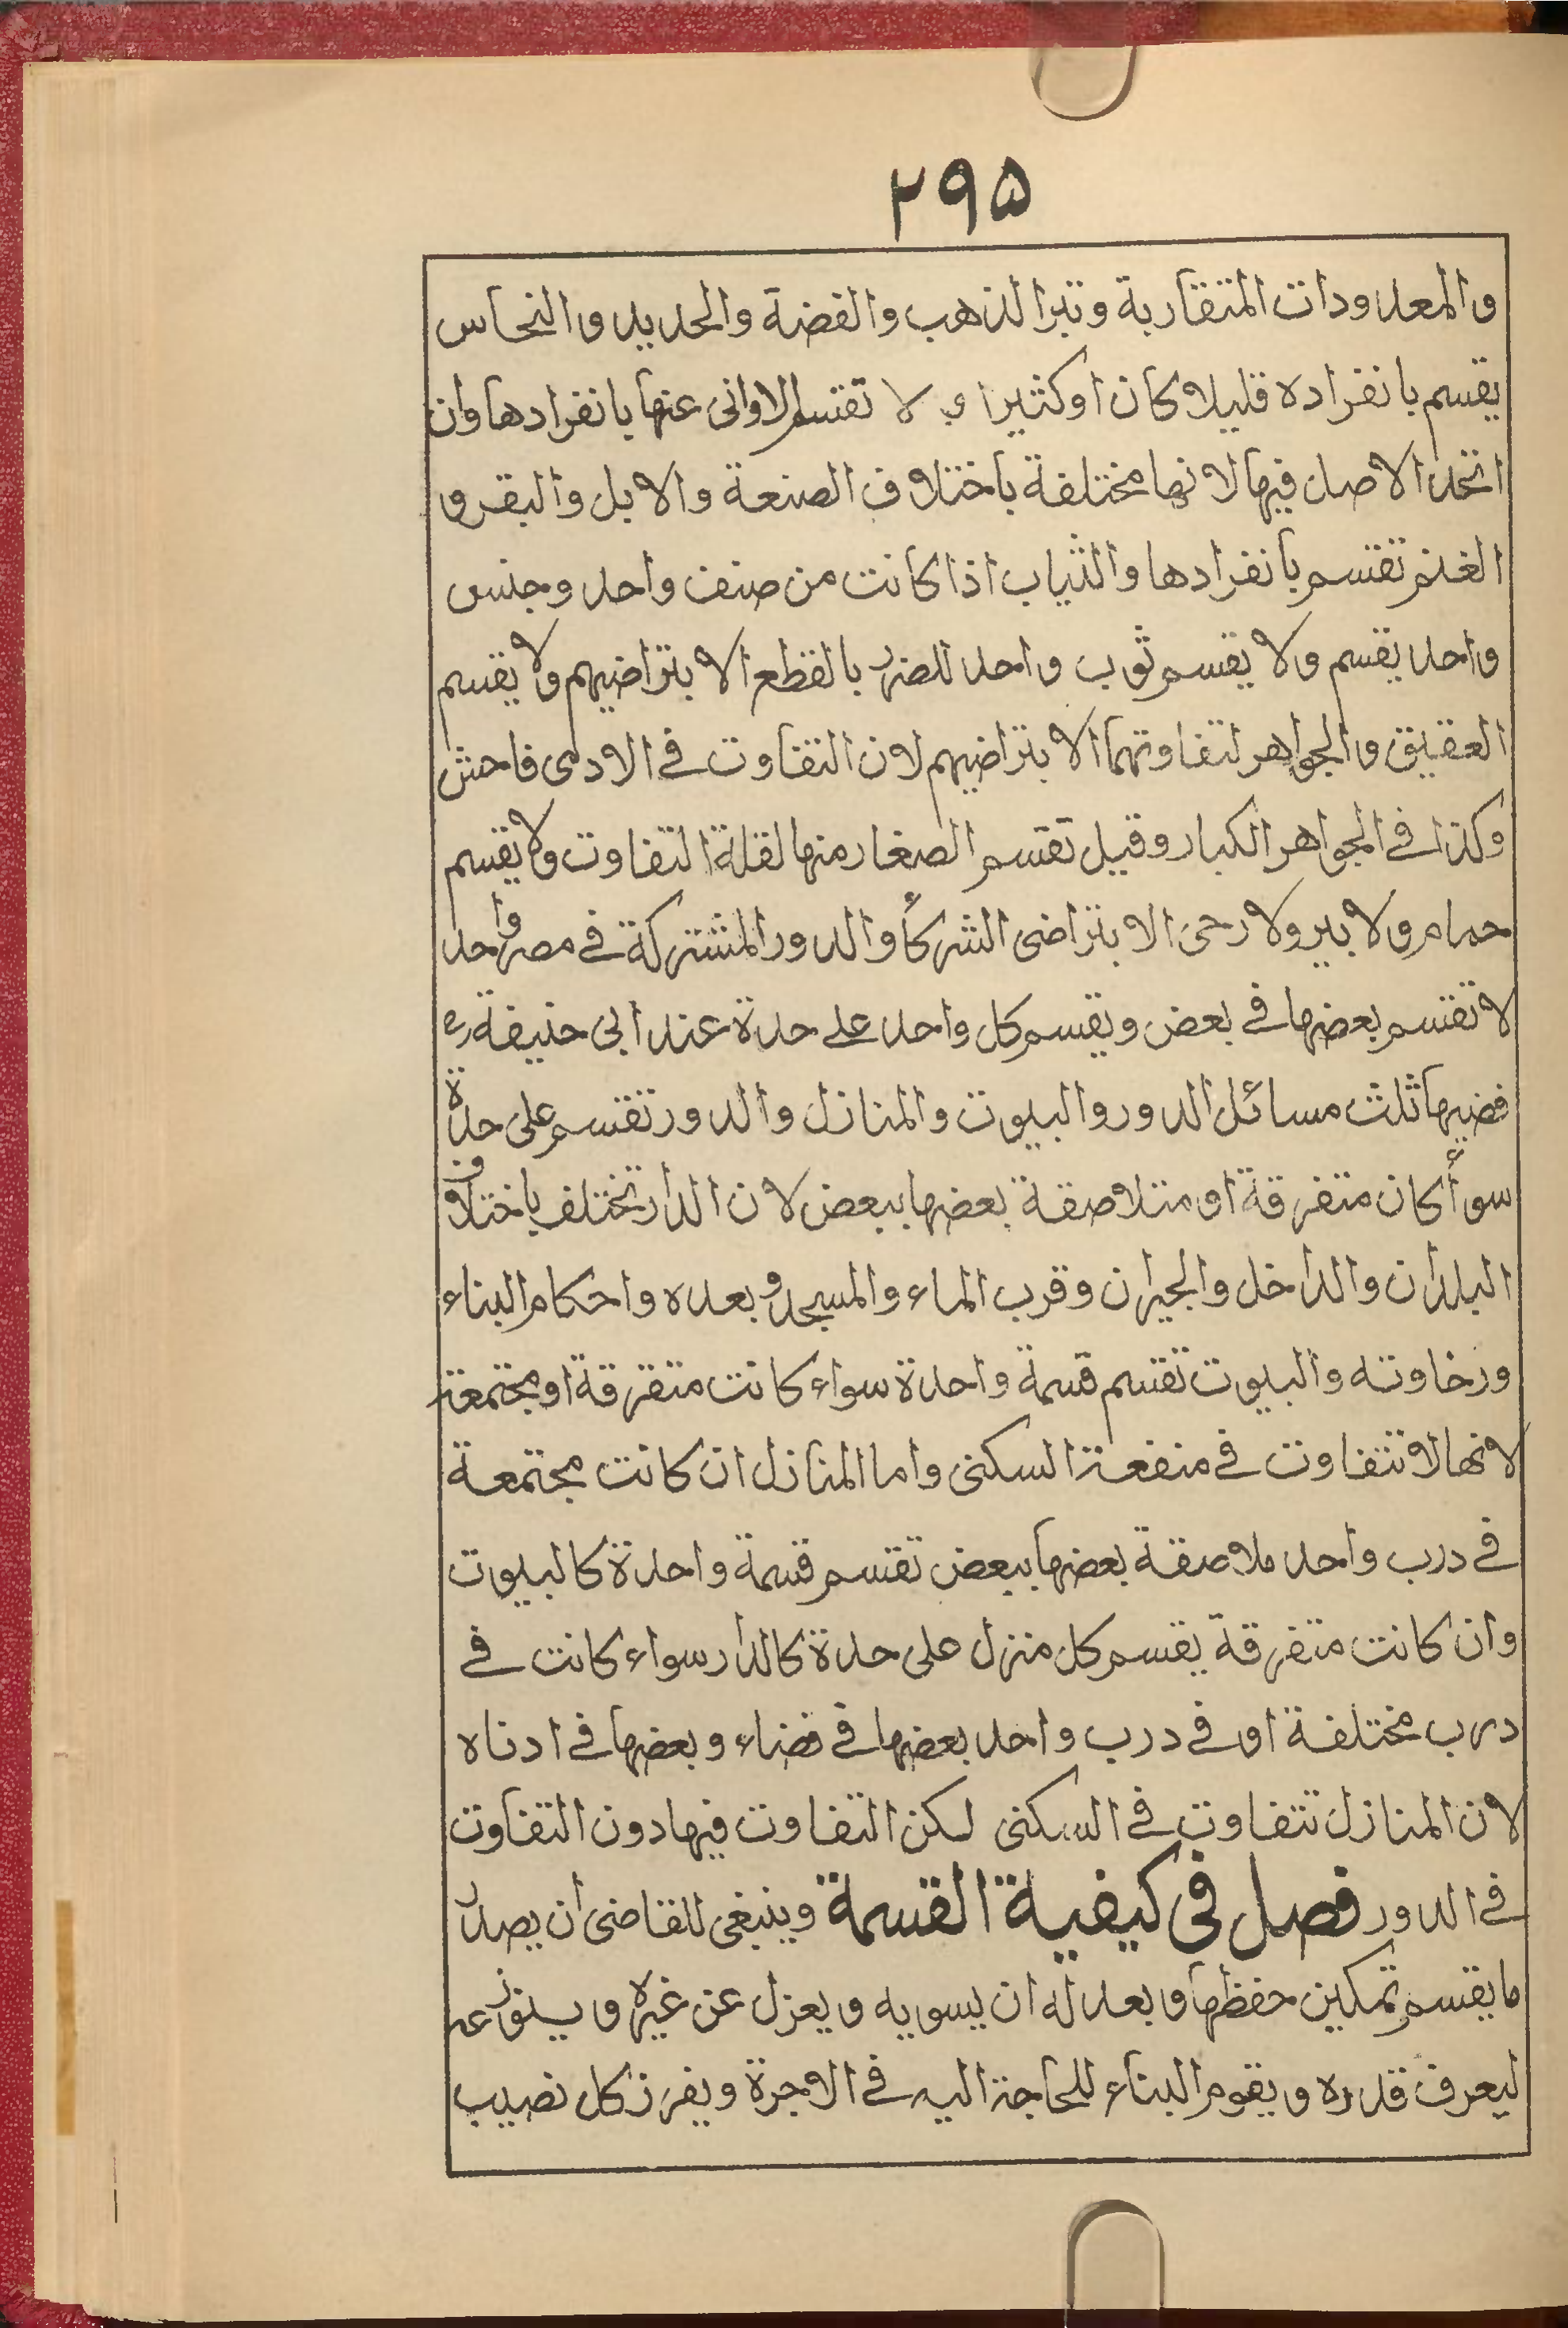 ۲۹۵
والمعدودات المتقاربة وتبر الذهب والفضة والحديد والنحاس
يقسم بانفراده قليلا كان او كثيرا و لا تقتسم الاوانى عنها بانفرادها وان
اتحد الاصل فيها لانها مختلفة باختلاف الصنعة والابل والبقر و
الغنم تقتسم بانفرادها والثياب اذا كانت من صنف واحد وجنس
واحد يقسم ولا يقسم ثوب واحد للضرر بالقطع الا بتراضيهم ولا يقسم
العقيق والجواهر لتفاوتهما الا بتراضيهم لان التفاوت في الادمى فاحش
وكذا في الجواهر الكبار وقيل تقسم الصغار منها لقلة التفاوت ولا يقسم
حمام ولا بير ولا رحى الا بتراضى الشركأ والدور المشتركة في مصر واحد
لا تقتسم بعضها في بعض ويقسم كل واحد على حدة عند ابى حنيفة رح
فضيها ثلث مسائل الدور والبيوت والمنازل والدور تقتسم على حدة
سوأ كان متفرقة او متلاصقة بعضها ببعض لان الدار تختلف باختلاف
البلدان والداخل والجيران وقرب الماء والمسجد وبعده واحكام البناء
ورخاوته والبيوت تقتسم قسمة واحدة سواء كانت متفرقة او مجتمعة
لانها لا تتفاوت في منفعة السكنى واما المنازل ان كانت مجتمعة
في درب واحد ملاصقة بعضها ببعض تقتسم قسمة واحدة كالبيوت
وان كانت متفرقة يقسم كل منزل على حدة كالدار سواء كانت في
درب مختلفة او في درب واحد بعضها في فضاء وبعضها في ادناه
لان المنازل تتفاوت في السكنى لكن التفاوت فيها دون التفاوت
في الدور فصل فى كيفية القسمة وينبغى للقاضى ان يصدر
ما يقسم تمكين حفظها و بعد له ان يسويه ويعزل عن غيره و
ليعرف قدره ويقوم البناء للحاجة اليه في الاجرة ويفرز كل نصيب